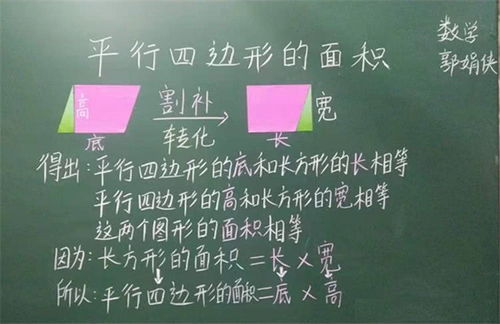 平行四边形的面积
数学
郭娟侠
高
底
割补
转化
宽
长
得出:平行四边形的底和长方形的长相等
平行四边形的高和长方形的宽相等
这两个图形的面积相等
因为:长方形的面积=长×宽
所以:平行四边形的面积=底×高